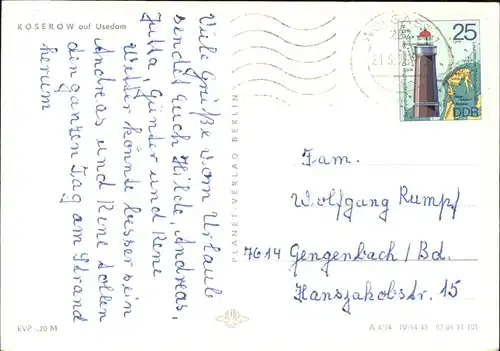 KOSEROW auf Usedom
Viele Grüße vom Urlaub
sendet Euch Hilde, Andreas,
Jutta, Günter und Rene
Wetter könnte besser sein
Andreas und Rene tollen
den ganzen Tag am Strand
herum
PLANET-VERLAG BERLIN
25
DDR
Fam.
Wolfgang Rumpf
7614 Gengenbach/Bd.
Hansjakobstr. 15
EVP -,20 M
A 4/74 IV-14-45 02 01 11 101